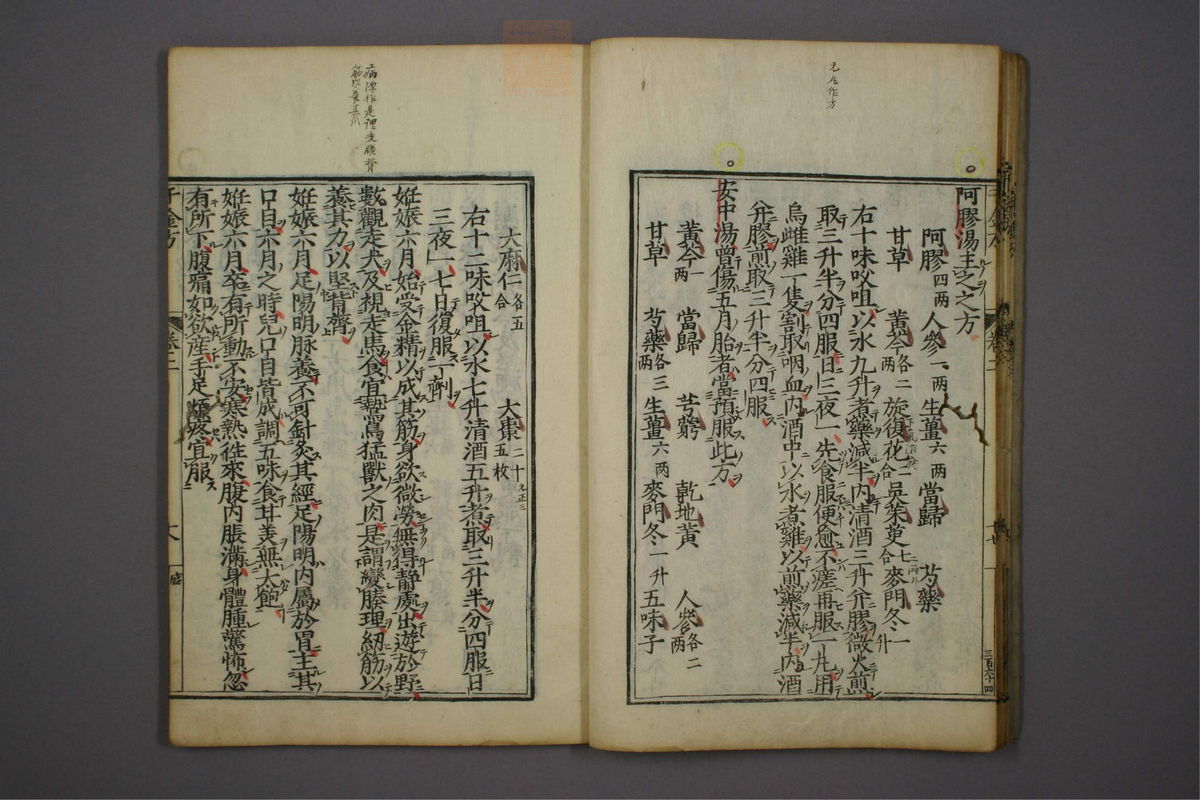 元凡作方
阿膠湯主之之方
阿膠四兩 人參一兩 生薑六兩 當歸 芍藥
甘草 黃芩各二兩 旋復花一合 吳茱萸七合 麥門冬一升
右十味㕮咀以水九升煮藥減半內清酒三升幷膠微火煎
取三升半分四服日三夜一先食服便愈不瘥再服一方用
烏雌雞一隻割取咽血內酒中以水煮雞以煎藥減半內酒
幷膠煎取三升半分四服
安中湯曾傷五月胎者當預服此方
黃芩一兩 當歸 芎藭 乾地黃 人參各二兩
甘草 芍藥各三兩 生薑六兩 麥門冬一升 五味子
三百六十四
大麻仁各五合 大棗二十五枚
右十二味㕮咀以水七升清酒五升煮取三升半分四服日
三夜一七日復服一劑
妊娠六月始受金精以成其筋身欲微勞無得靜處出遊於野
數觀走犬及視走馬食宜鷙鳥猛獸之肉是謂變腠理紉筋以
養其力以堅背膂
妊娠六月足陽明脉養不可針灸其經足陽明內屬於胃主其
口目六月之時兒口目皆成調五味食甘美無大飽
妊娠六月卒有所動不安寒熱往來腹內脹滿身體腫驚怖忽
有所下腹痛如欲産手足煩疼宜服
千金方 卷二 六